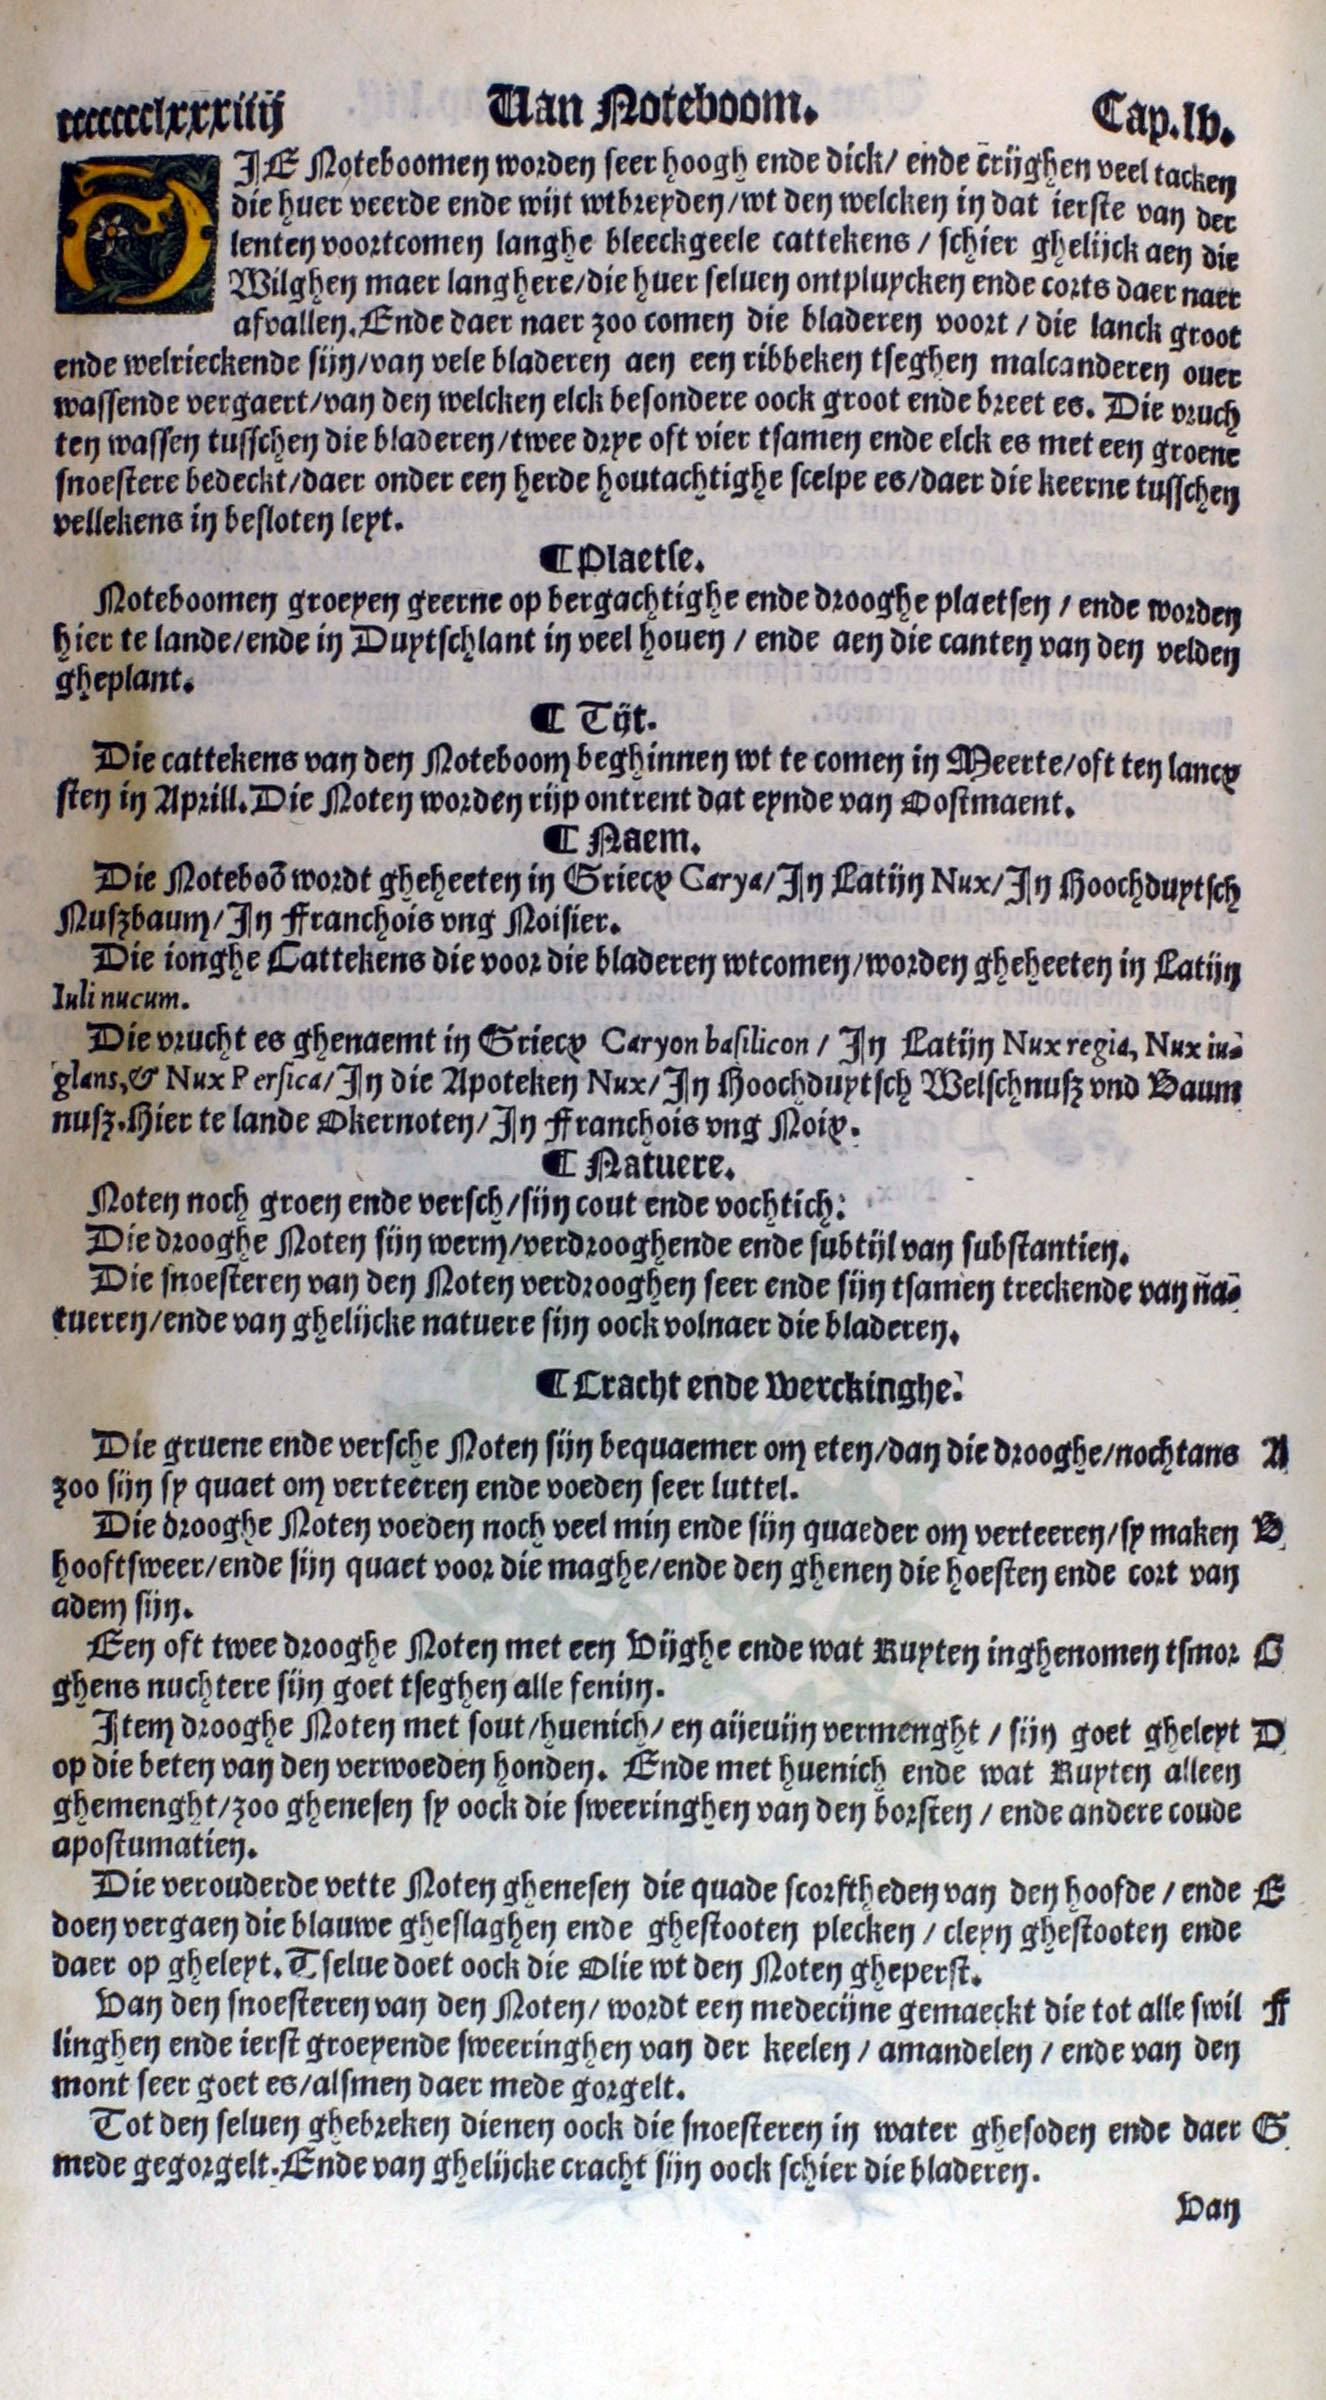 ccccccclxxxiiij Van Noteboom. Cap.lv.
DIE Noteboomen worden seer hoogh ende dick/ ende crijghen veel tacken
die huer veerde ende wijt wtbreyden/wt den welcken in dat ierste van der
lenten voortcomen langhe bleeckgeele cattekens / schier ghelijck aen die
Wilghen maer langhere/die huer seluen ontpluycken ende corts daer naer
afvallen. Ende daer naer zoo comen die bladeren voort / die lanck groot
ende welrieckende sijn/van vele bladeren aen een ribbeken tseghen malcanderen ouer
wassende vergaert/van den welcken elck besondere oock groot ende breet es. Die vruch
ten wassen tusschen die bladeren/twee drye oft vier tsamen ende elck es met een groene
snoestere bedeckt/daer onder een herde houtachtighe scelpe es/daer die keerne tusschen
vellekens in besloten leyt.
¶ Plaetse.
Noteboomen groeyen geerne op bergachtighe ende drooghe plaetsen / ende worden
hier te lande/ende in Duytschlant in veel houen / ende aen die canten van den velden
gheplant.
¶ Tijt.
Die cattekens van den Noteboom beghinnen wt te comen in Meerte/oft ten lancx
sten in Aprill. Die Noten worden rijp ontrent dat eynde van Oostmaent.
¶ Naem.
Die Noteboō wordt gheheeten in Griecx Carya/In Latijn Nux/In Hoochduytsch
Nuszbaum/In Franchois vng Noisier.
Die ionghe Cattekens die voor die bladeren wtcomen/worden gheheeten in Latijn
Iuli nucum.
Die vrucht es ghenaemt in Griecx Caryon basilicon / In Latijn Nux regia, Nux iu-
glans, & Nux Persica/In die Apoteken Nux/In Hoochduytsch Welschnusz vnd Baum
nusz. Hier te lande Okernoten/In Franchois vng Noix.
¶ Natuere.
Noten noch groen ende versch/sijn cout ende vochtich.
Die drooghe Noten sijn werm/verdrooghende ende subtijl van substantien.
Die snoesteren van den Noten verdrooghen seer ende sijn tsamen treckende van na-
tueren/ende van ghelijcke natuere sijn oock volnaer die bladeren.
¶ Cracht ende werckinghe.
Die gruene ende versche Noten sijn bequaemer om eten/dan die drooghe/nochtans A
zoo sijn sy quaet om verteeren ende voeden seer luttel.
Die drooghe Noten voeden noch veel min ende sijn quaeder om verteeren/sy maken B
hooftsweer/ende sijn quaet voor die maghe/ende den ghenen die hoesten ende cort van
adem sijn.
Een oft twee drooghe Noten met een Vijghe ende wat Ruyten inghenomen tsmor C
ghens nuchtere sijn goet tseghen alle fenijn.
Item drooghe Noten met sout/huenich/ en aijeuijn vermenght / sijn goet gheleyt D
op die beten van den verwoeden honden. Ende met huenich ende wat Ruyten alleen
ghemenght/zoo ghenesen sy oock die sweeringhen van den borsten / ende andere coude
apostumatien.
Die verouderde vette Noten ghenesen die quade scorftheden van den hoofde / ende E
doen vergaen die blauwe gheslaghen ende ghestooten plecken / cleyn ghestooten ende
daer op gheleyt. Tselue doet oock die Olie wt den Noten gheperst.
Van den snoesteren van den Noten/ wordt een medecijne gemaeckt die tot alle swil F
linghen ende ierst groeyende sweeringhen van der keelen / amandelen / ende van den
mont seer goet es/alsmen daer mede gorgelt.
Tot den seluen ghebreken dienen oock die snoesteren in water ghesoden ende daer G
mede gegorgelt. Ende van ghelijcke cracht sijn oock schier die bladeren.
Van